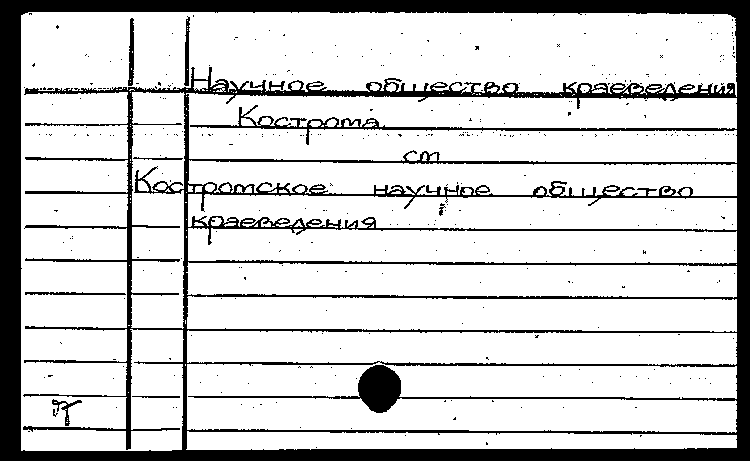 Научное общество краеведения
Кострома
см
Костромское научное общество
краеведения